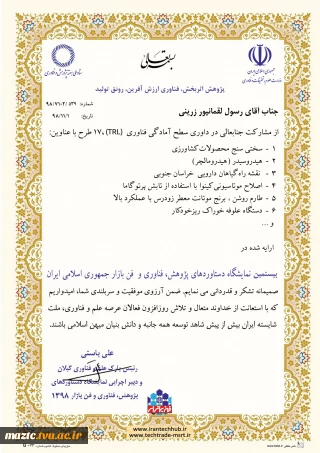 بسمه تعالی
جمهوری اسلامی ایران
وزارت علوم، تحقیقات و فناوری
پژوهش اثربخش، فناوری ارزش آفرین، رونق تولید
شماره: ۹۸/۷۱۰۲/۵۳۹
تاریخ: ۹۸/۱۱/۱
جناب آقای رسول لقمانپور زرینی
از مشارکت جنابعالی در داوری سطح آمادگی فناوری (TRL)، ۱۷ طرح با عناوین:
۱ - سختی سنج محصولات کشاورزی
۲ - هیدروسیدر (هیدرومالچر)
۳ - نقشه راه گیاهان دارویی خراسان جنوبی
۴ - اصلاح موتاسیونی کینوا با استفاده از تابش پرتو گاما
۵ - طارم روشن ، برنج موتانت معطر زودرس با عملکرد بالا
۶ - دستگاه علوفه خوراک ریزخودکار
و ...
ارایه شده در
بیستمین نمایشگاه دستاوردهای پژوهش، فناوری و فن بازار جمهوری اسلامی ایران
صمیمانه تشکر و قدردانی می نمایم. ضمن آرزوی موفقیت و سربلندی شما، امیدواریم
که با استعانت از خداوند متعال و تلاش روزافزون فعالان عرصه علم و فناوری، ملت
شایسته ایران بیش از پیش شاهد توسعه همه جانبه و دانش بنیان میهن اسلامی باشند.
علی باستی
رئیس پارک علم و فناوری گیلان
و دبیر اجرایی نمایشگاه دستاوردهای
پژوهش، فناوری و فن بازار ۱۳۹۸
www.irantechhub.ir
www.techtrade-msrt.ir
mazic.tvu.ac.ir